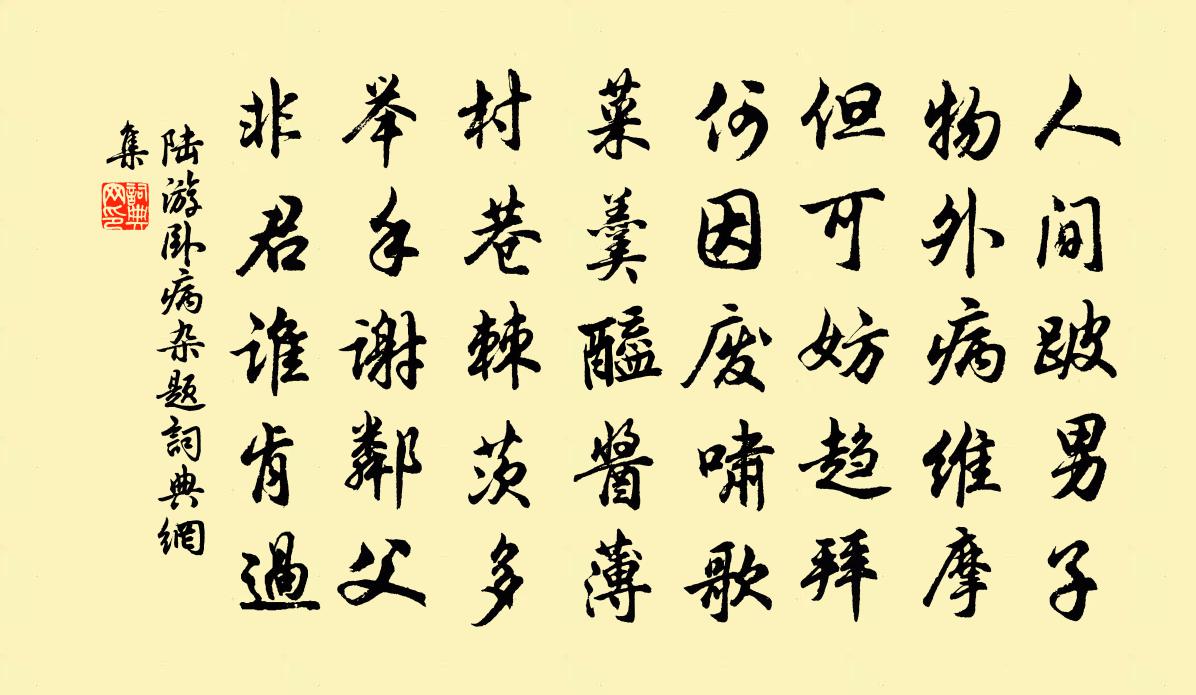 人间跛男子
物外病维摩
但可妨趋拜
何因废啸歌
菜羹醯酱薄
村巷棘茨多
举手谢邻父
非君谁肯过
陆游卧病杂题詞典網
集
詞典
网印